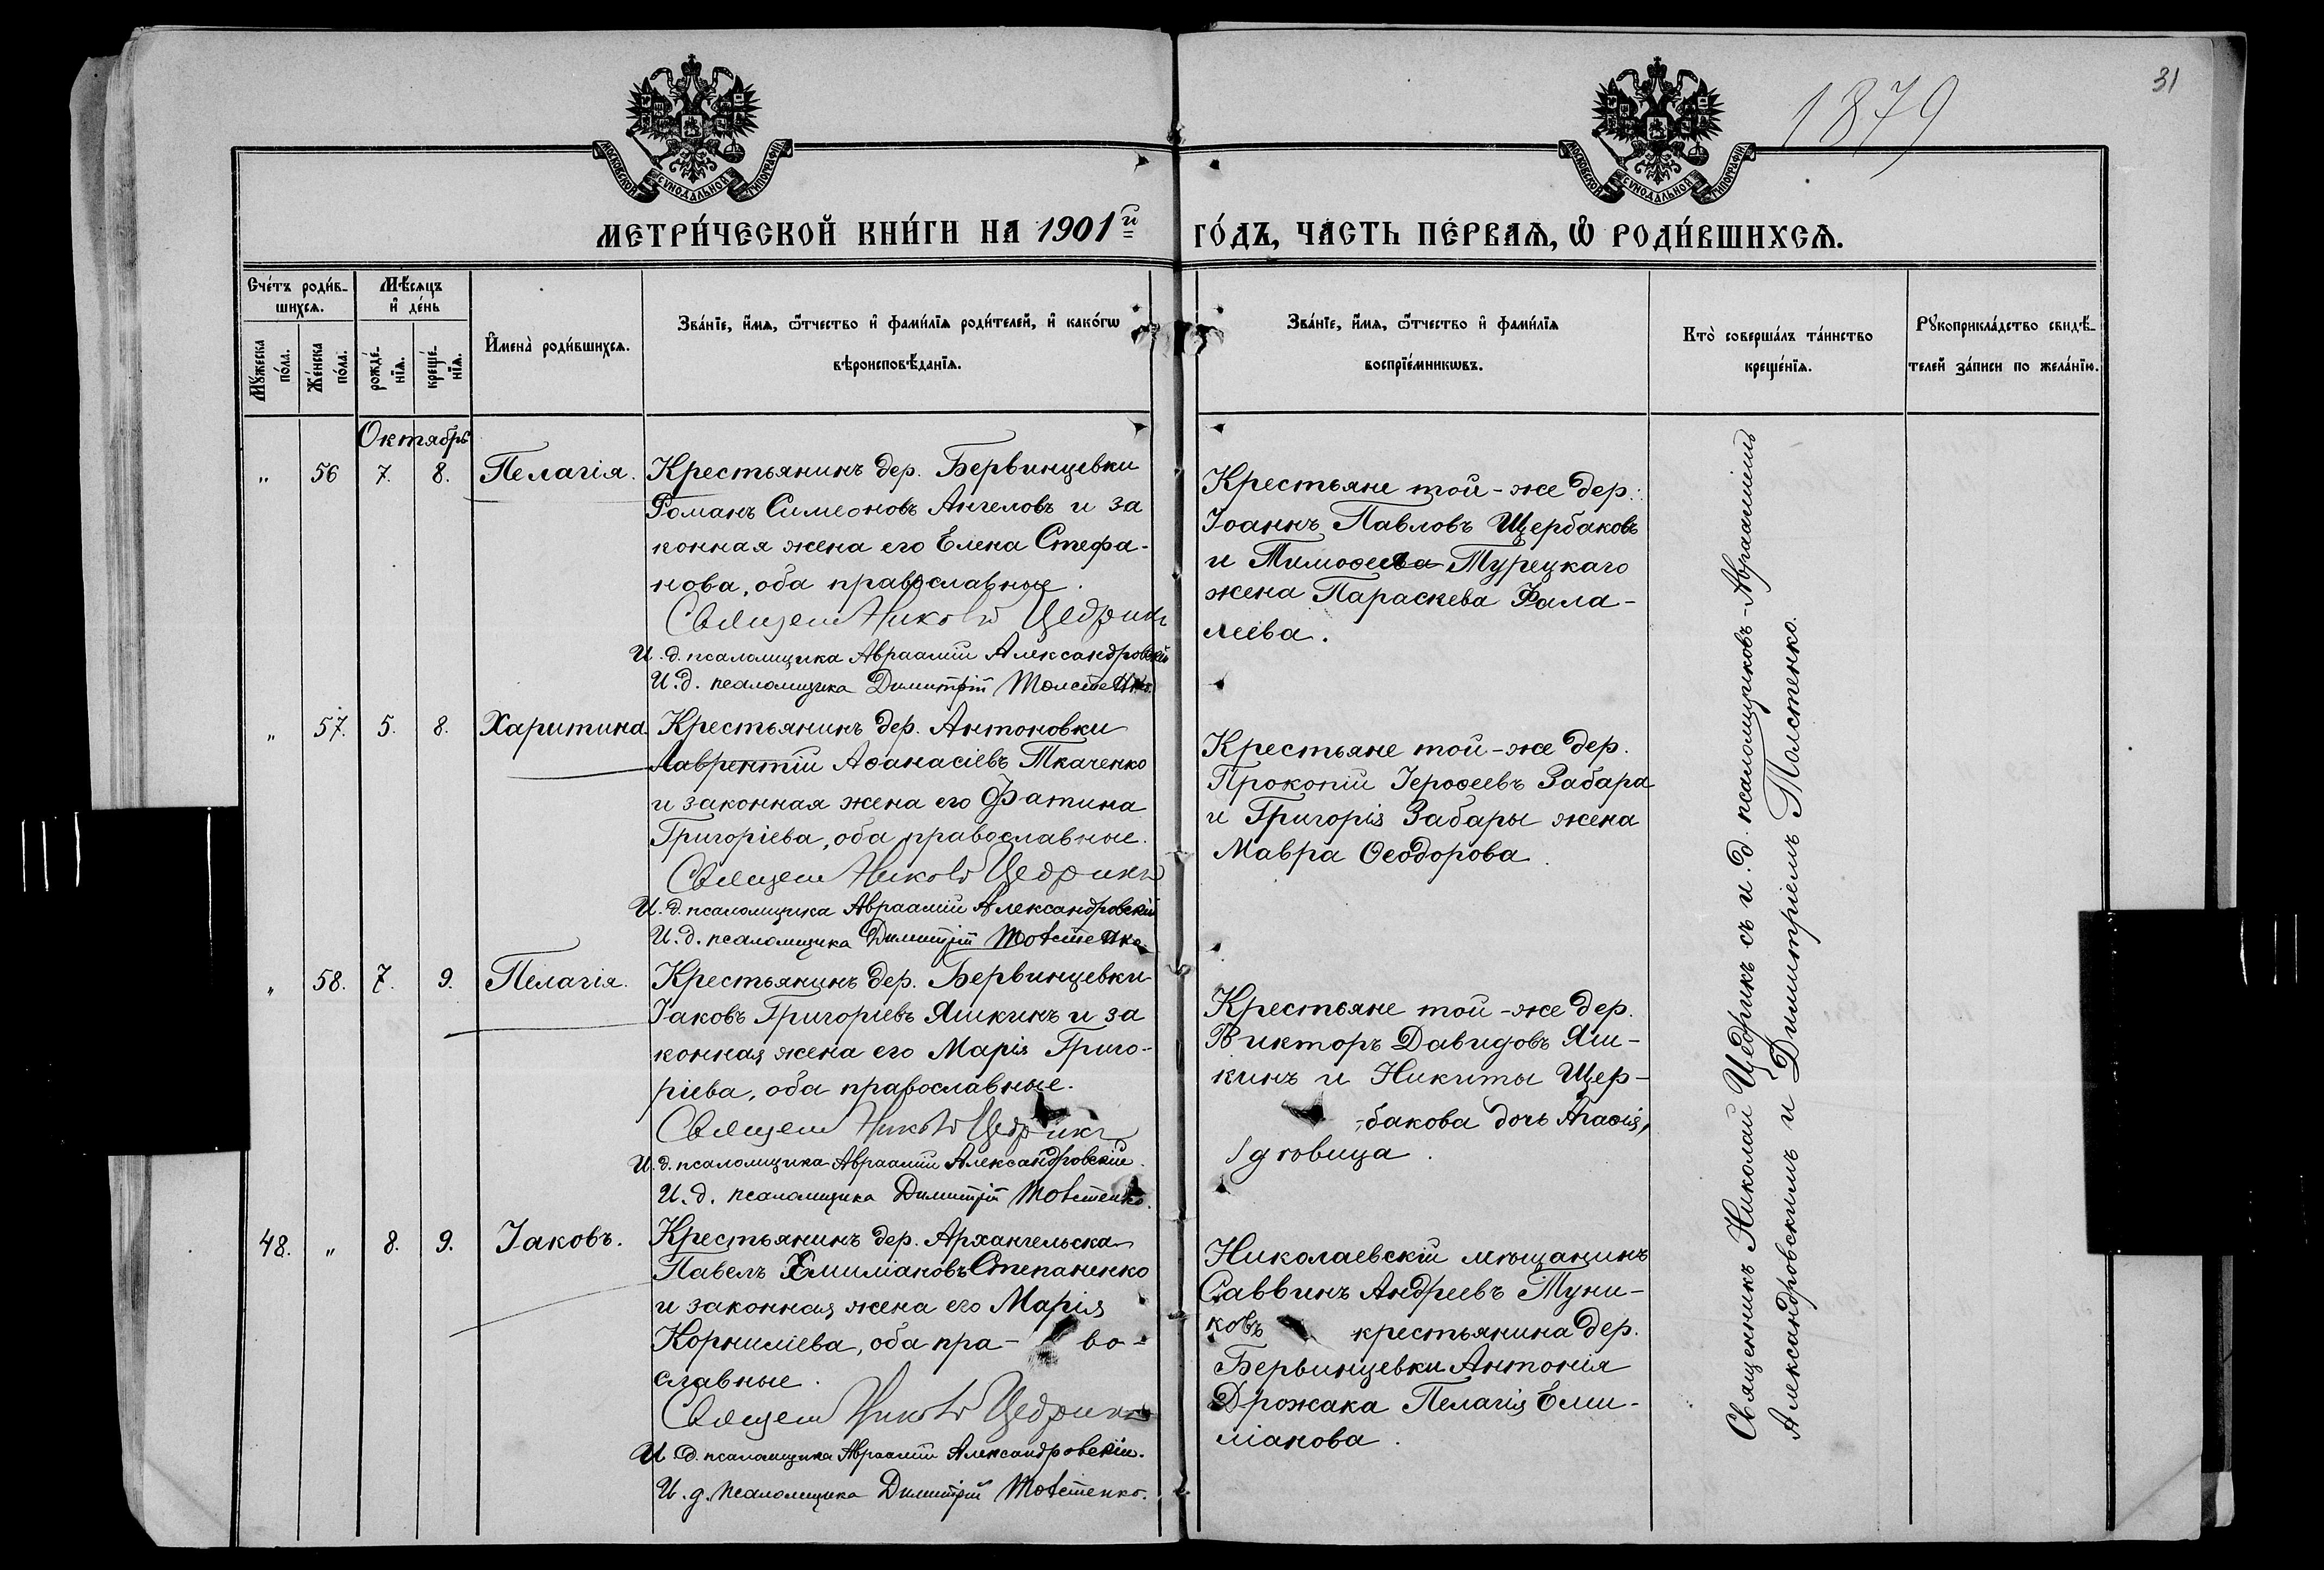 31
1879
МОСКОВСКОЙ СѴНОДАЛЬНОЙ ТИПОГРАФІИ
МОСКОВСКОЙ СѴНОДАЛЬНОЙ ТИПОГРАФІИ
МЕТРИ́ЧЕСКОЙ КНИ́ГИ НА 1901й
ГО́ДЪ, ЧА́СТЬ ПЕ́РВАѦ, Ѽ РОДИ́ВШИХСѦ.
Сче́тъ роди́в-
шихсѧ.
Мѣ́сѧцъ
и҆ де́нь
Мꙋ́жеска
по́ла.
Же́нска
по́ла.
рожде́-
нїѧ.
креще́-
нїѧ.
И҆мена̀ роди́вшихсѧ.
Зва́нїе, и҆́мѧ, ѻ҆́тчество и҆ фами́лїѧ роди́телей, и҆ како́гѡ
вѣроисповѣ́данїѧ.
Зва́нїе, и҆́мѧ, ѻ҆́тчество и҆ фами́лїѧ
воспрїе́мникѡвъ.
Кто̀ соверша́лъ та́инство
креще́нїѧ.
Рꙋкоприкла́дство свидѣ́-
телей за́писи по жела́нїю.
Октябрь
" 56 7. 8. Пелагія.
Крестьянинъ дер. Бервинцевки
Романъ Симеоновъ Ангеловъ и за
конная жена его Елена Стефа-
нова, оба православные.
Священ Николай Цедрикъ
И. д. псаломщика Авраамій Александровскій
И. д. псаломщика Димитрій Толстенко.
Крестьяне той-же дер.
Іоаннъ Павловъ Щербаковъ
и Тимоѳея Турецкаго
жена Параскева Фала-
леева.
" 57. 5. 8. Харитина
Крестьянинъ дер. Антоновки
Лаврентій Аѳанасіевъ Ткаченко
и законная жена его Фатина
Григоріева, оба православные.
Священ Николай Цедрикъ
И. д. псаломщика Авраамій Александровскій
И. д. псаломщика Димитрій Толстенко
Крестьяне той-же дер.
Прокопій Іероѳеевъ Забара
и Григорія Забары жена
Мавра Ѳеодорова.
" 58. 7. 9. Пелагія.
Крестьянинъ дер. Бервинцевки
Іаковъ Григоріевъ Яшкинъ и за
конная жена его Марія Григо-
ріева, оба православные.
Священ Николай Цедрикъ
И. д. псаломщика Авраамій Александровскій.
И. д. псаломщика Димитрій Толстенко.
Крестьяне той-же дер.
Викторъ Давидовъ Яш-
кинъ и Никиты Щер-
бакова дочь Агаѳія,
дѣвица.
48. " 8. 9. Іаковъ.
Крестьянинъ дер. Архангельска
Павелъ Емиліановъ Степаненко
и законная жена его Марія
Корниліева, оба пра- во-
славные.
Священ Николай Цедрикъ
И. д. псаломщика Авраамій Александровскій.
И. д. псаломщика Димитрій Толстенко.
Николаевскій мѣщанинъ
Саввинъ Андреевъ Туни-
ковъ крестьянина дер.
Бервинцевки Антонія
Дрожака Пелагія Еми-
ліанова.
Священникъ Николай Цедрикъ съ и. д. псаломщиковъ Авраамiемъ
Александровскимъ и Димитріемъ Толстенко.